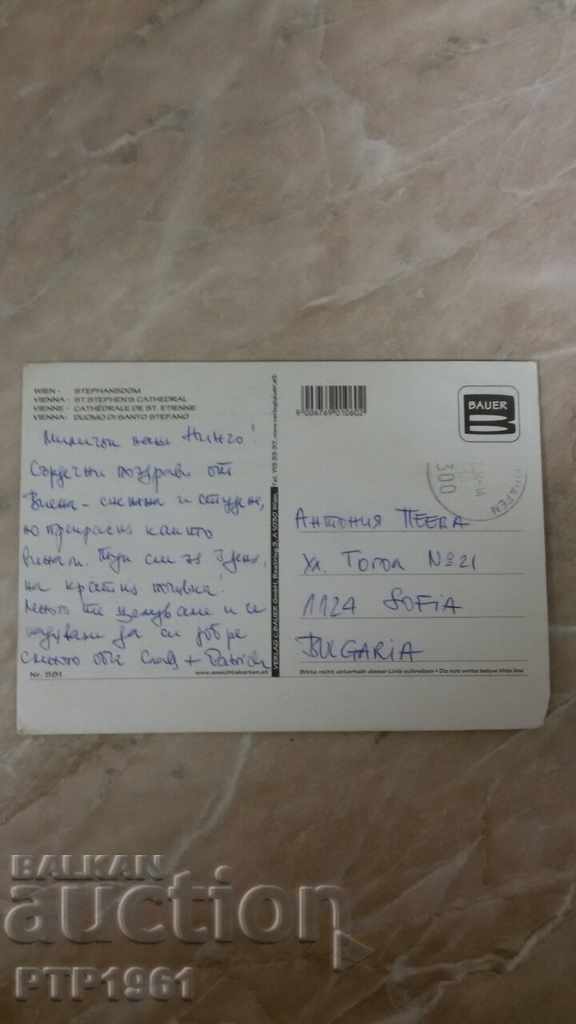 WIEN - STEPHANSDOM
VIENNA - ST. STEPHEN'S CATHEDRAL
VIENNE - CATHÉDRALE DE ST. ETIENNE
VIENNA: DUOMO DI SANTO STEFANO
9 006769 010602
BAUER
300
HAFEN
Сърдечни поздрави от
Виена - снежна и студена,
но прекрасна както
винаги. Тук сме за 3 дена,
на кратка почивка!
Много те целуваме и се
надяваме да си добре
АНТОНИЯ ПЕЕВА
Ул. Гогол № 21
1124 SOFIA
BULGARIA
VERLAG C. BAUER GmbH,
Nr. 581
www.ansichtskarten.at
Bitte nicht unterhalb dieser Linie schreiben • Do not write below this line
BALKAN
auction
PTP1961